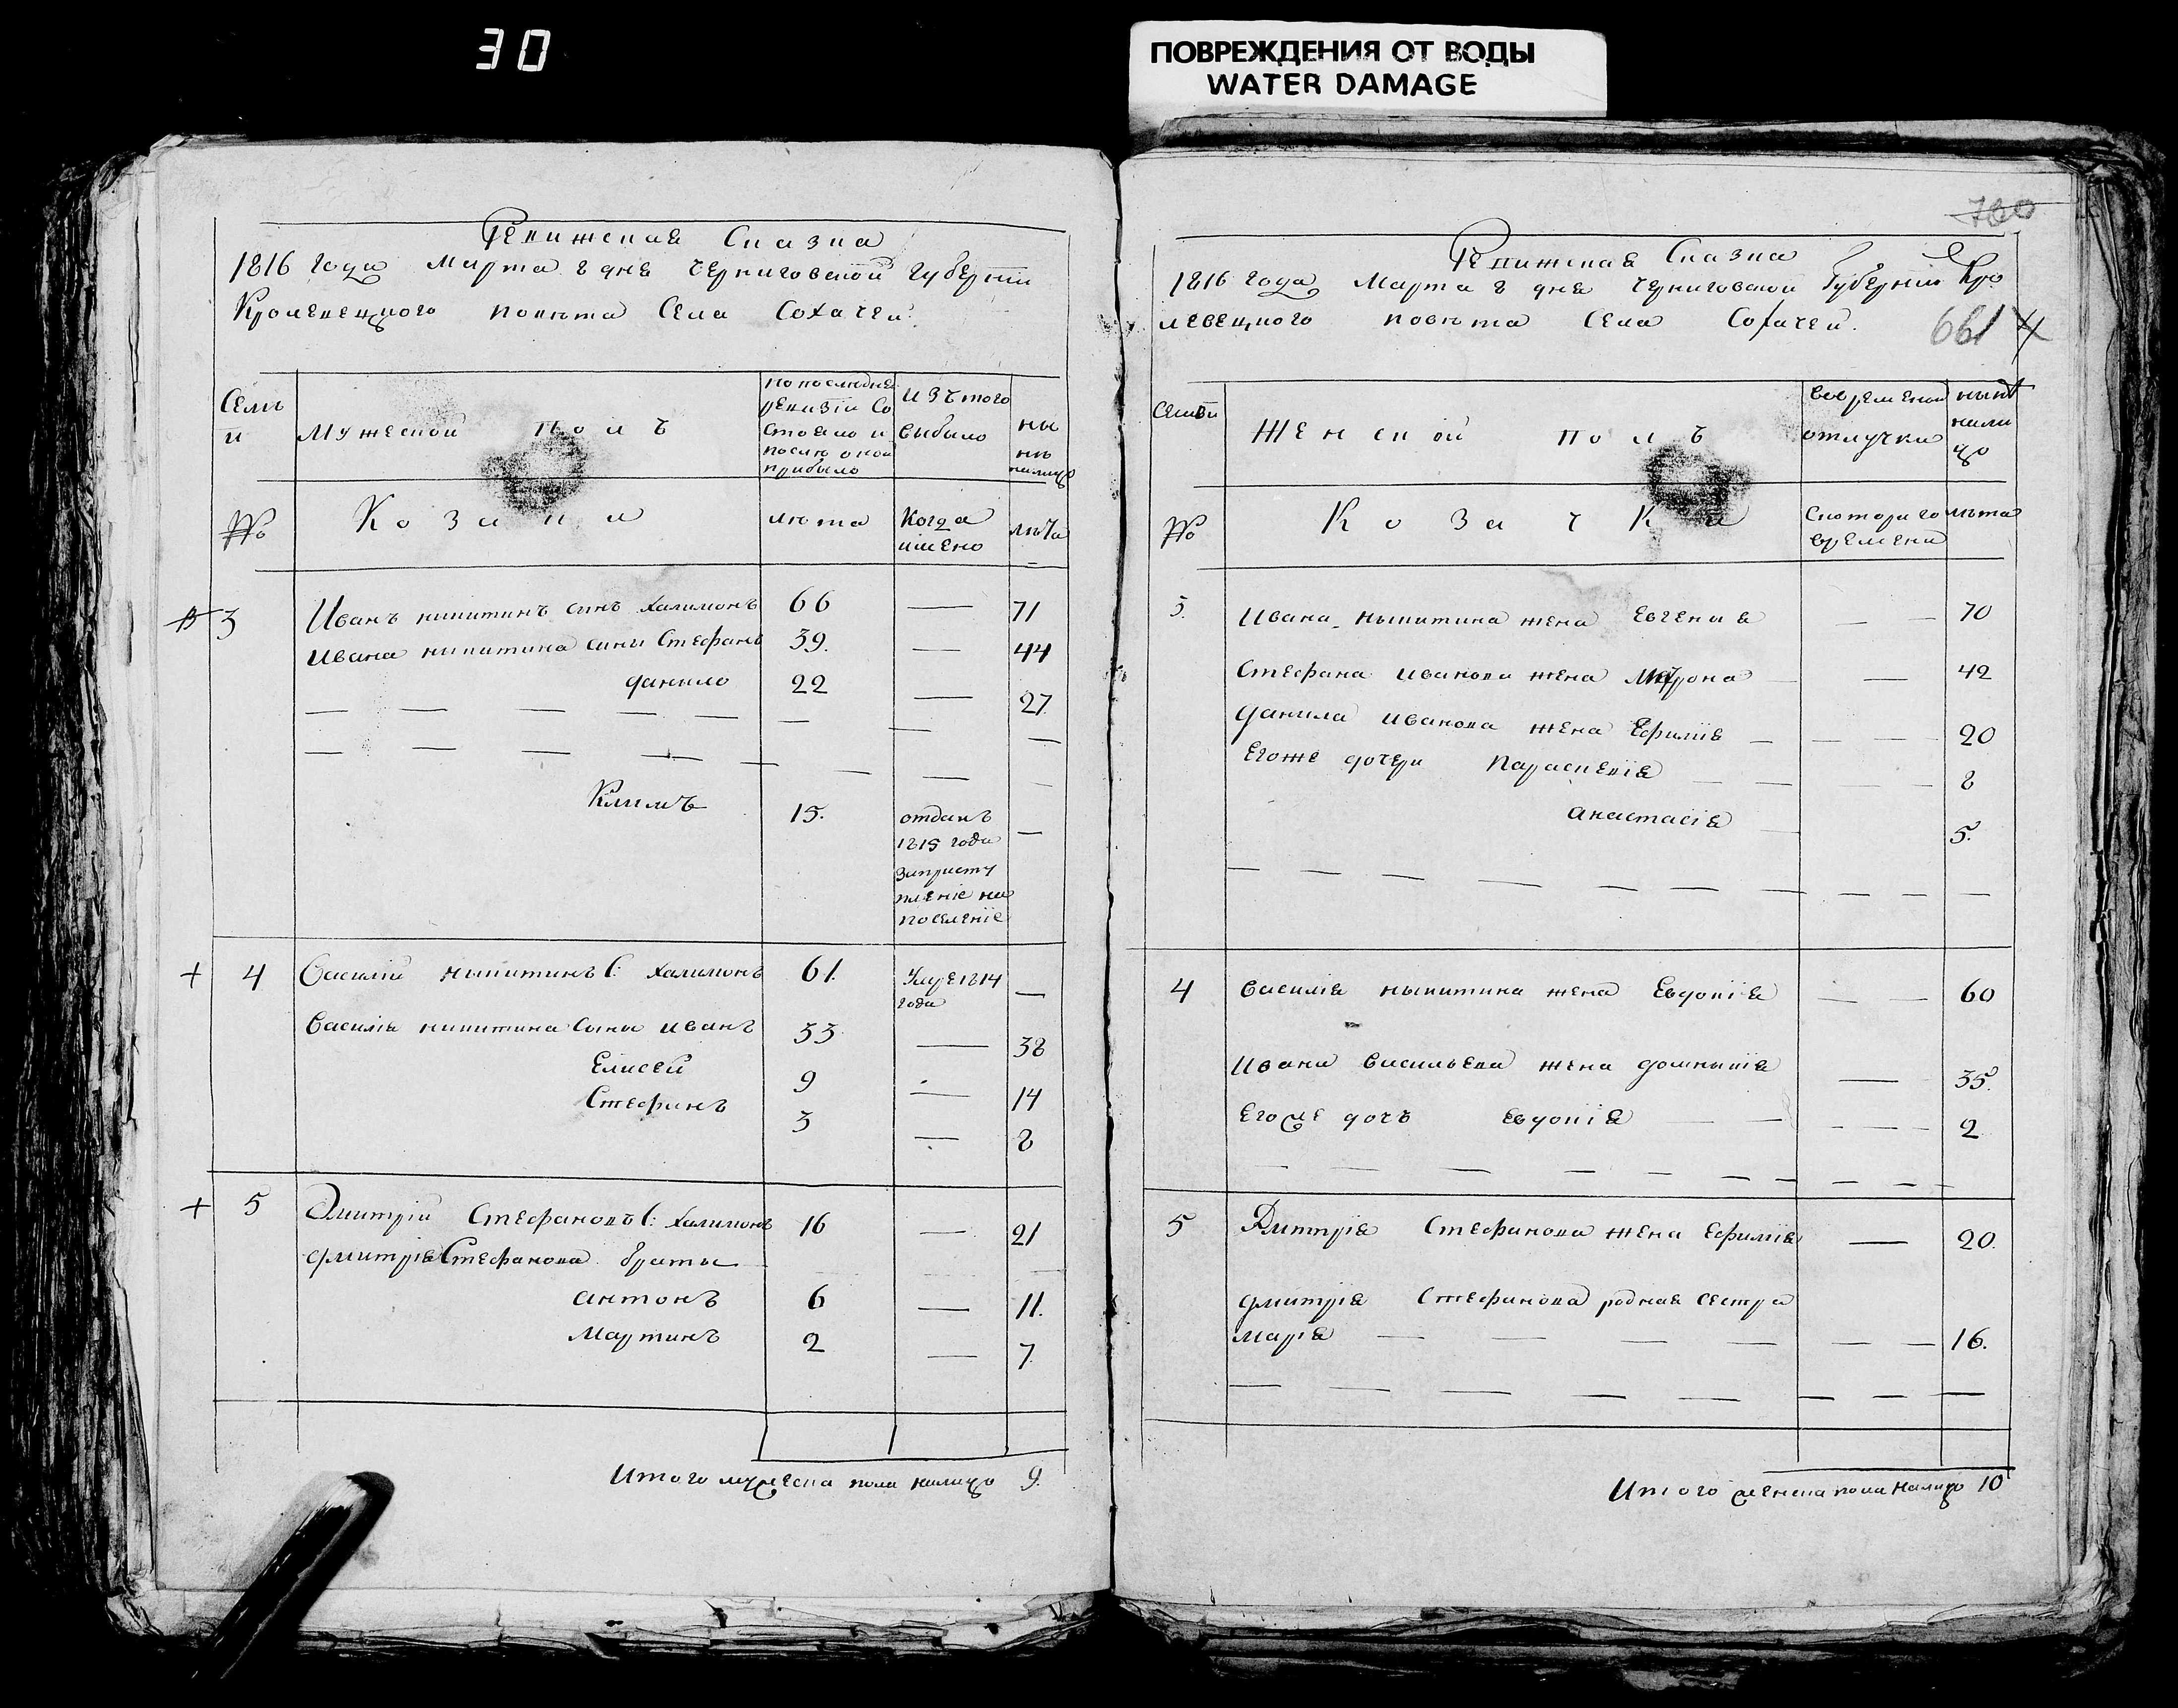 30
ПОВРЕЖДЕНИЯ ОТ ВОДЫ
WATER DAMAGE
Ревижская Сказка
1816 года Марта 8 дня Черниговской губерніи
Кролевецкого повѣта Села Сохачей.
Семьи
Мужеской полъ
по последней ревизіи состояло и послѣ оной прибыло
Изъ того выбыло
ныне на лицо
№
Козаки
лѣта
Когда имено
лѣта
3 Иванъ никитинъ синъ Халимонъ 66 — 71
Ивана никитина сини Стефанъ 39. — 44
данило 22 — 27
Климъ 15. отданъ 1815 года за приступленіе на поселеніе —
4 Василій никитинъ С: Халимонъ 61. Умре 1814 года —
Василія никитина Сыны иванъ 33 — 38
Елисей 9 — 14
Стефанъ 3 — 8
5 Дмитрій Стефановъ С: Халимонъ 16 — 21
дмитрія Стефанова браты
антонъ 6 — 11.
Мартинъ 2 — 7
Итого мужеска пола налицо 9.
700
Ревижская Сказка
1816 года Марта 8 дня Черниговской Губерніи Кро
левецкого повѣта Села Сохачей.
661 4
Семьи
Женской полъ
Во временной отлучки
ныне налицо
№
Козачки
С котораго времени
лѣта
3. Ивана никитина жена Евгения — — 70
Стефана иванова жена Матрона — — 42
данила иванова жена Ефимія — — — — 20
Егоже дочери Параскевія — — — — — 8
анастасія — 5.
4 Василія никитина жена Евдокія — — 60
Ивана Васильева жена домникія — 35.
Егоже дочъ Евдокія — — — — — 2
5 Дмитрія Стефанова жена Ефимія — 20.
дмитрія Стефанова родная сестра
Марія — — — — — — — 16.
Итого женска пола налицо 10